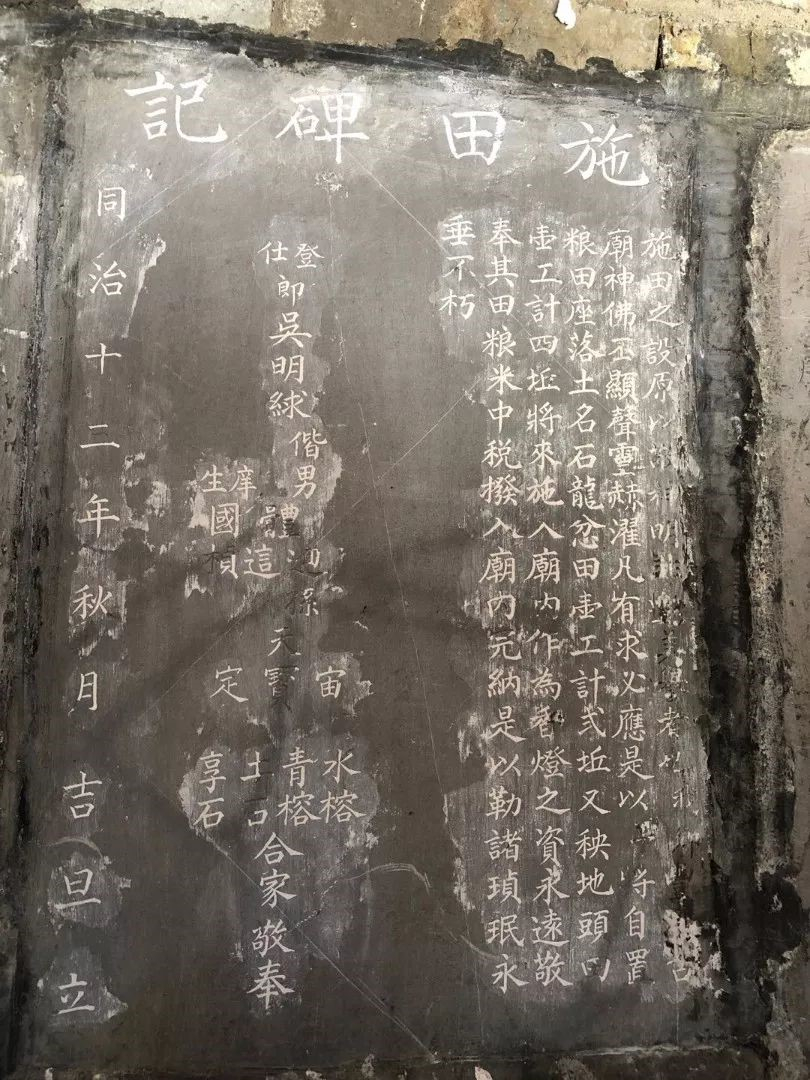 施田碑記
施田之設原以
廟神佛丕顯聲靈赫濯凡有求必應是以將自置
粮田座落土名石龍忿田壷工計弍坵又秧地頭田
壷工計四坵將來施入廟內作為香燈之資永遠敬
奉其田粮米中税撥入廟內完納是以勒諸瑣珉永
垂不朽
登仕郎吳明絿偕男體這庠生國楨孫天寶定宙水榕青榕土享石合家敬奉
同治十二年秋月吉旦立